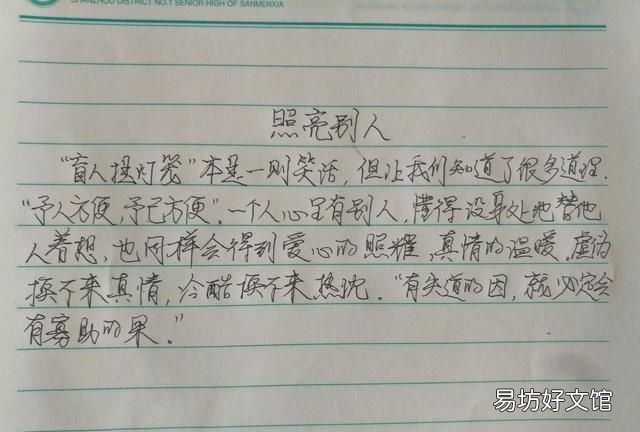 SHANZHOU DISTRICT NO.1 SENIOR HIGH OF SANMENXIA
照亮别人
“盲人提灯笼”本是一则笑话，但让我们知道了很多道理.
“予人方便，予己方便”.一个人心里有别人，懂得设身处地替他
人着想，也同样会得到爱心的照耀，真情的温暖.虚伪
换不来真情，冷酷换不来热忱.“有失道的因，就必定会
有寡助的果.”
易坊好文馆